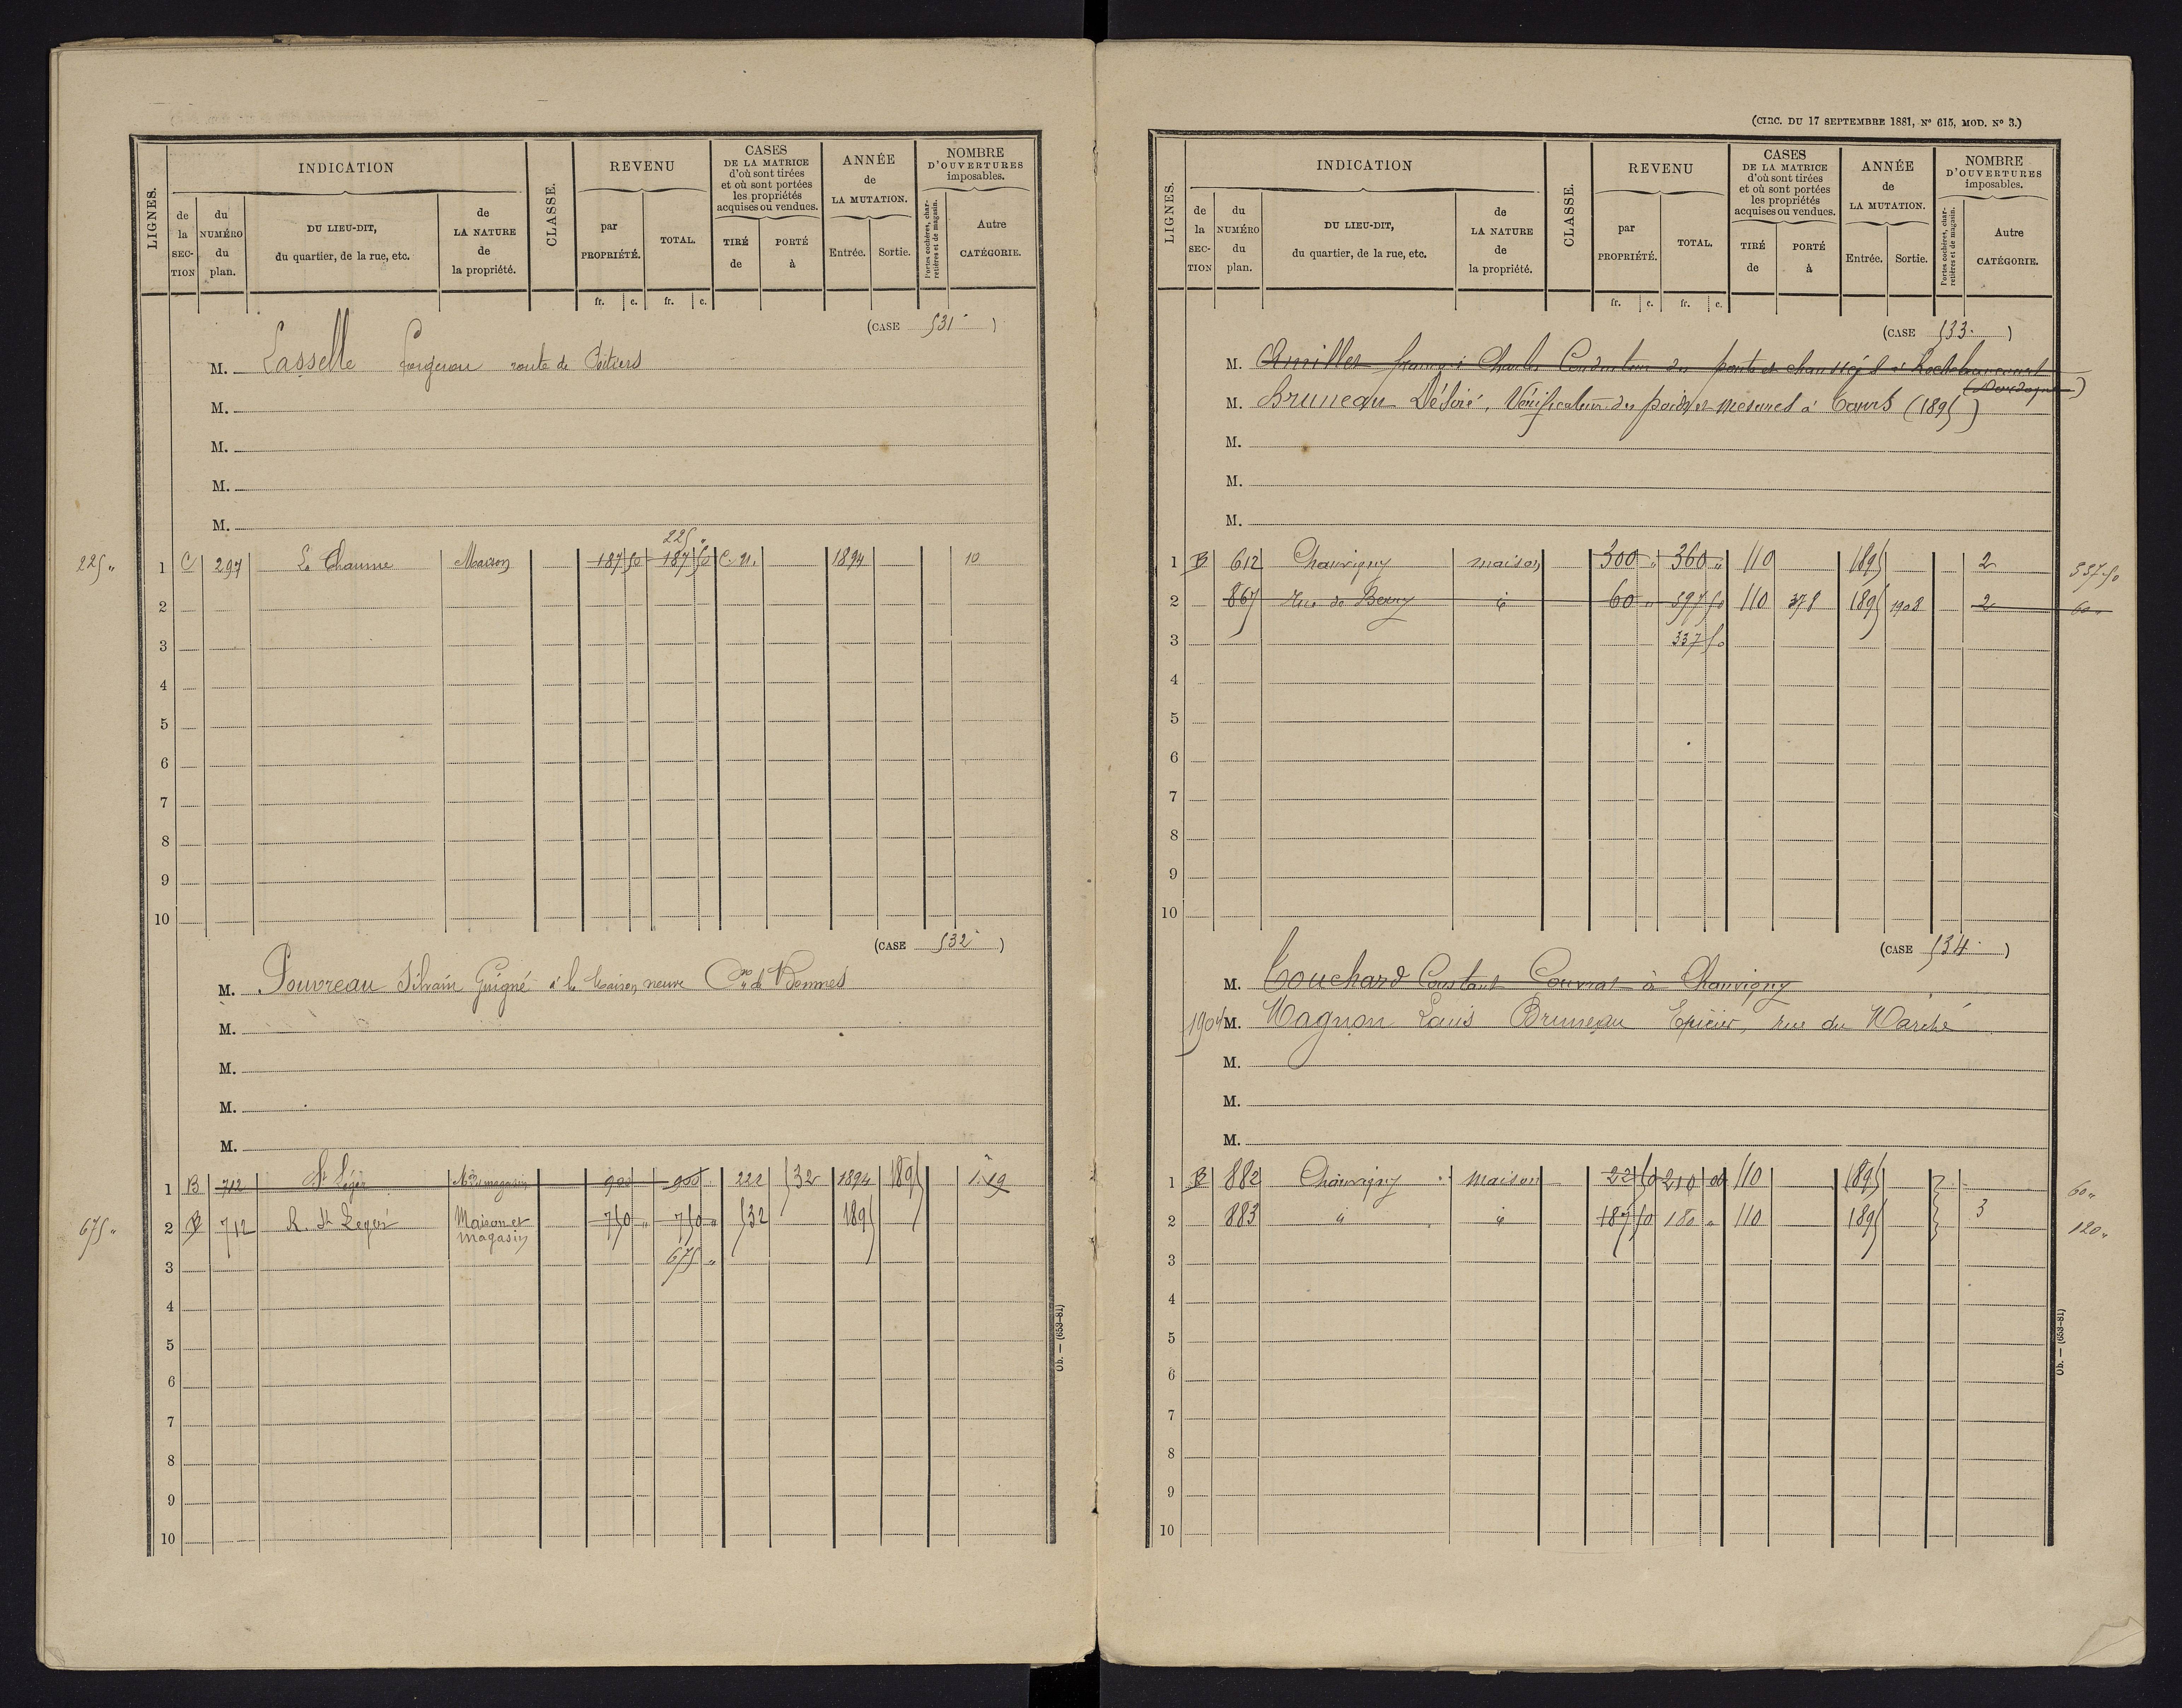 LIGNES.
INDICATION
de la SECTION
du NUMÉRO du plan.
DU LIEU-DIT, du quartier, de la rue, etc.
de LA NATURE de la propriété.
CLASSE.
REVENU
par PROPRIÉTÉ.
TOTAL.
fr. c. fr. c.
CASES DE LA MATRICE d'où sont tirées et où sont portées les propriétés acquises ou vendues.
TIRÉ de
PORTÉ à
ANNÉE de LA MUTATION.
Entrée. Sortie.
NOMBRE D'OUVERTURES imposables.
Portes cochères, charretières et de magasin.
Autre CATÉGORIE.
(CASE 531)
M. Lasselle forgeron route de Poitiers
M.
M.
M.
M.
225 "
225 "
1 C 297 La Chaume Maison 187 50 187 50 C. N. 1894 10
2
3
4
5
6
7
8
9
10
(CASE 532)
M. Pouvreau Silvain Guigné à la Maison neuve Cne de Bonnes
M.
M.
M.
M.
1 B 712 St Léger Mon magasin 900 900 222 532 1894 1895 1. 19
675 "
2 B 712 R. St Leger Maison et magasin 750 " 750 " 532 1895
3 675 "
4
5
6
7
8
9
10
Ob. — (653-81)
(CIRC. DU 17 SEPTEMBRE 1881, N° 615, MOD. N° 3.)
LIGNES.
INDICATION
de la SECTION
du NUMÉRO du plan.
DU LIEU-DIT, du quartier, de la rue, etc.
de LA NATURE de la propriété.
CLASSE.
REVENU
par PROPRIÉTÉ.
TOTAL.
fr. c. fr. c.
CASES DE LA MATRICE d'où sont tirées et où sont portées les propriétés acquises ou vendues.
TIRÉ de
PORTÉ à
ANNÉE de LA MUTATION.
Entrée. Sortie.
NOMBRE D'OUVERTURES imposables.
Portes cochères, charretières et de magasin.
Autre CATÉGORIE.
(CASE 533)
M. françois Charles Conducteur des ponts et chaussées à
(Dordogne)
M. Bruneau Désiré, Vérificateur des poids et mesures à Tours (1895)
M.
M.
M.
1 B 612 Chauvigny maison 300 " 360 " 110 1895 2 337 50
2 867 Rue de Berry id 60 " 397 50 110 378 1895 1908 2 60 "
3 337 50
4
5
6
7
8
9
10
(CASE 534)
M. Touchard Constant Couvrat à Chauvigny
1904 M. Magnon Louis Bruneau Epicier, rue du Marché
M.
M.
M.
1 B 882 Chauvigny maison 22 50 210 00 110 1895 60 "
2 883 " id 187 50 180 " 110 1895 3 120 "
3
4
5
6
7
8
9
10
Ob. — (653-81)